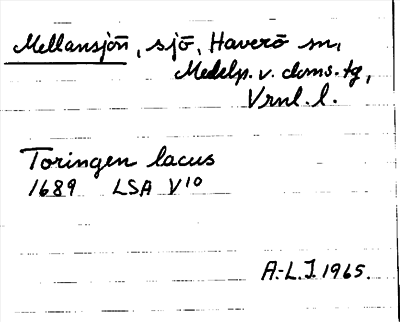 Mellansjön, sjö, Haverö sn,
Medelp. v. doms. tg,
Vrnl. l.
Toringen lacus
1689 LSA V10
A.-L.J. 1965.